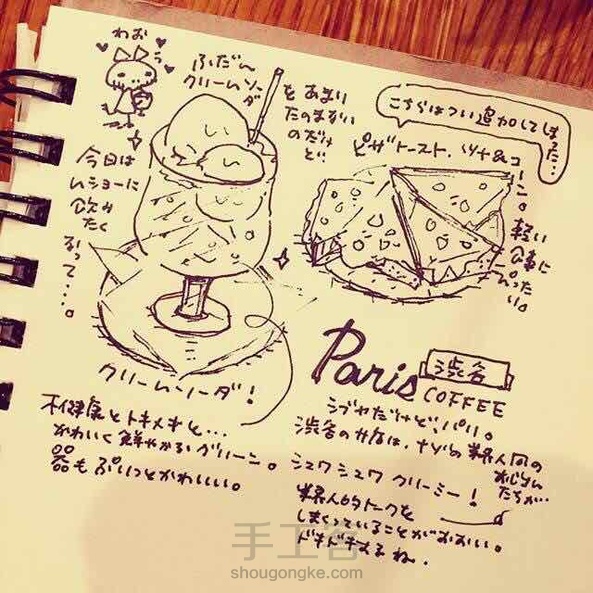 わお
ふだん
クリームソーダ
を あまり
たのまない
のだけ
ど、
今日は
ムショーに
飲みたく
なって…。
クリームソーダ！
こちらはつい追加してしまった…
ピザトースト、ツナ&コーン。
軽い
食事に
ぴったい。
Paris
渋谷
COFFEE
シブヤだけど、パリ。
渋谷のお店は、ナゾの業界人風の
おじさん
たちが…
シュワシュワ クリーミー！
業界人的トークを
しまくっていることがおおい。
ドキドキするね。
不健康とトキメキと…
かわいく鮮やかなグリーン。
器もぷりっとかわいい。
手工客
shougongke.com